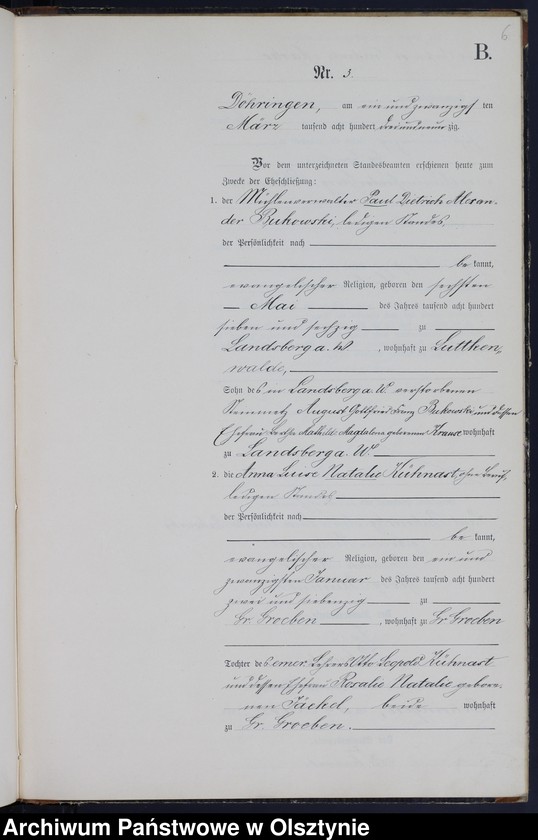 6
B.
Nr. 3.
Döhringen, am ein und zwanzigs ten
März tausend acht hundert drei und neun zig.
Vor dem unterzeichneten Standesbeamten erschienen heute zum
Zwecke der Eheschließung:
1. der Mühlenverwalter Paul Dietrich Alexan-
der Bukowski, ledigen Standes,
der Persönlichkeit nach
be kannt,
evangelischer Religion, geboren den sechsten
Mai des Jahres tausend acht hundert
sieben und sechzig zu
Landsberg a. W , wohnhaft zu Luttken
walde,
Sohn des in Landsberg a. W. verstorbenen
August Gottfried Franz Bukowski und dessen
Ehefrau Mathilde Magdalena geborenen Krause wohnhaft
zu Landsberg a. W.
2. die Anna Luise Natalie Kühnast, ohne Beruf,
ledigen Standes
der Persönlichkeit nach
be kannt,
evangelischer Religion, geboren den ein und
zwanzigsten Januar des Jahres tausend acht hundert
zwei und siebenzig zu
Gr. Groeben , wohnhaft zu Gr Groeben
Tochter des emer. Lehrers Otto Leopold Kühnast
und dessen Ehefrau Rosalie Natalie gebore-
nen Jäckel, beide wohnhaft
zu Gr. Groeben.
Archiwum Państwowe w Olsztynie